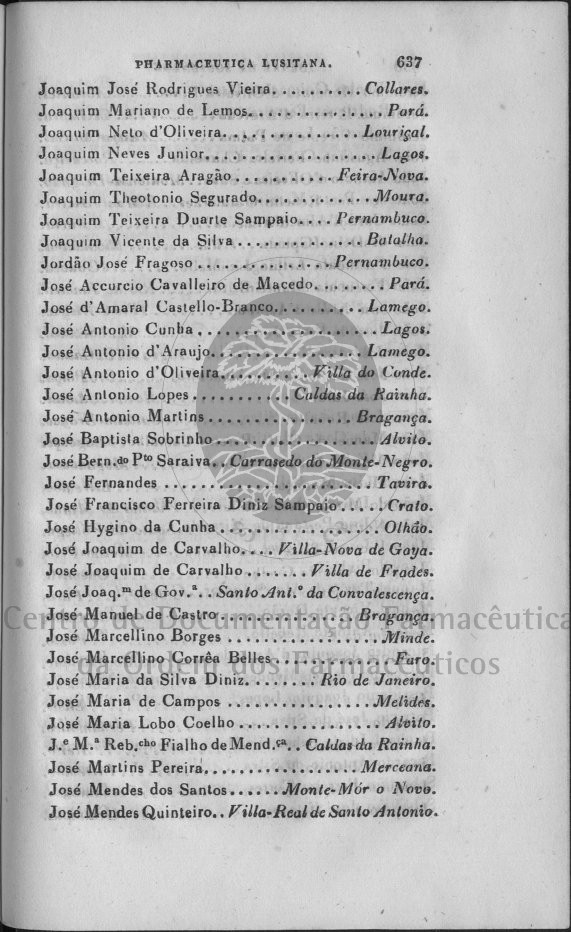 PHARMACEUTICA LUSITANA. 637
Joaquim José Rodrigues Vieira.......... Collares.
Joaquim Mariano de Lemos............... Pará.
Joaquim Neto d'Oliveira................ Louriçal.
Joaquim Neves Junior................... Lagos.
Joaquim Teixeira Aragão........... Feira-Nova.
Joaquim Theotonio Segurado............ Moura.
Joaquim Teixeira Duarte Sampaio.... Pernambuco.
Joaquim Vicente da Silva.............. Batalha.
Jordão José Fragoso............... Pernambuco.
José Accurcio Cavalleiro de Macedo........ Pará.
José d'Amaral Castello-Branco.......... Lamego.
José Antonio Cunha.................... Lagos.
José Antonio d'Araujo................. Lamego.
José Antonio d'Oliveira.......... Villa do Conde.
José Antonio Lopes........... Caldas da Rainha.
José Antonio Martins................. Bragança.
José Baptista Sobrinho.................. Alvito.
José Bern.do Pto Saraiva.. Carrasedo do Monte-Negro.
José Fernandes........................ Tavira.
José Francisco Ferreira Diniz Sampaio..... Crato.
José Hygino da Cunha.................. Olhão.
José Joaquim de Carvalho.... Villa-Nova de Goya.
José Joaquim de Carvalho....... Villa de Frades.
José Joaq.m de Gov.a.. Santo Ant.o da Convalescença.
José Manuel de Castro............... Bragança.
José Marcellino Borges................. Minde.
José Marcellino Corrêa Belles............ Faro.
José Maria da Silva Diniz........ Rio de Janeiro.
José Maria de Campos................ Melides.
José Maria Lobo Coelho................ Alvito.
J.e M.a Reb.cho Fialho de Mend.ça.. Caldas da Rainha.
José Martins Pereira................ Merceana.
José Mendes dos Santos...... Monte-Mór o Novo.
José Mendes Quinteiro.. Villa-Real de Santo Antonio.
Centro de Documentação Farmacêutica
da Ordem dos Farmacêuticos